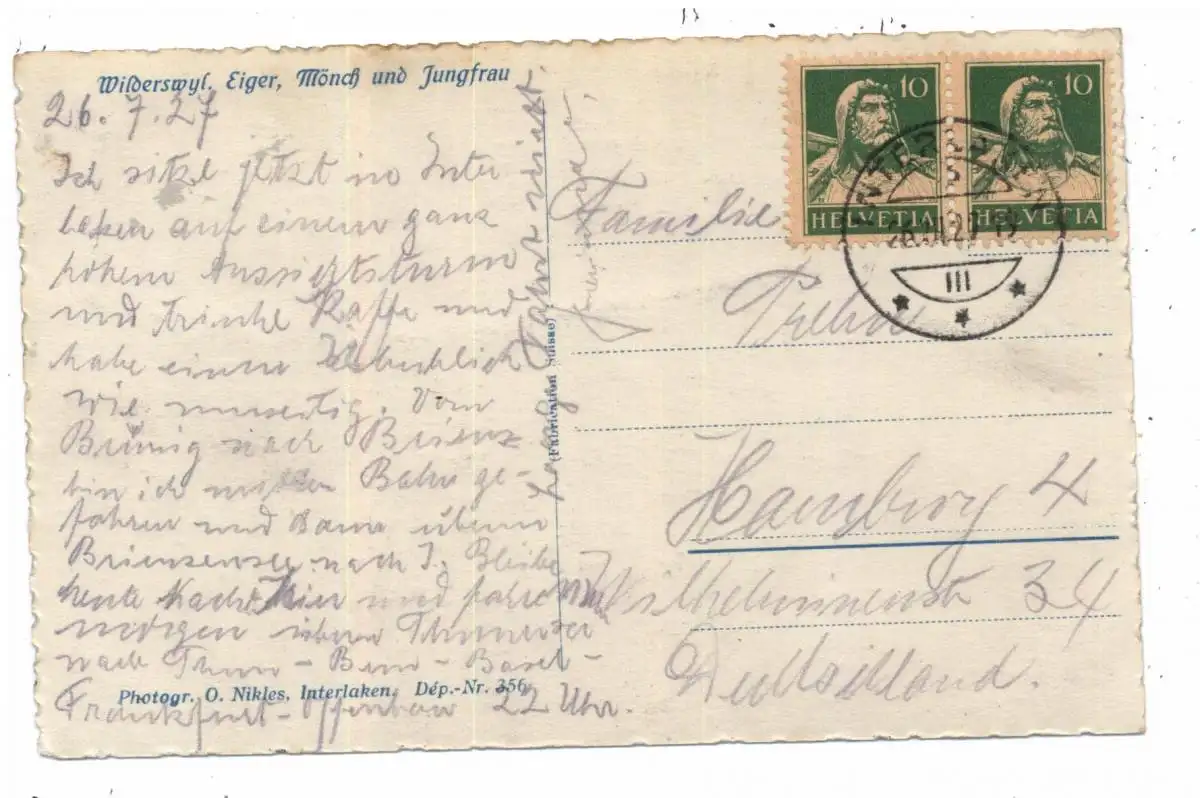 Wilderswyl. Eiger, Mönch und Jungfrau
26. 7. 27
Ich sitze jetzt in Inter
laken auf einem ganz
hohem Aussichtsturm
und trinke Kaffe und
habe einen
wie. Vom
Brünig nach Brienz
bin ich mit der Bahn ge-
fahren und dann übern
Brienzersee nach I. Bleibe
heute Nacht hier und fahre
morgen übern Thunersee
nach Thun – Bern – Basel –
Frankfurt – Offenbach 22 Uhr.
Photogr. O. Nikles, Interlaken. Dép.-Nr. 356
(Fabrication Suisse)
10 10
HELVETIA HELVETIA
INTERLAKEN
III
Familie
Hamburg 4
Wilhelminenstr 34
Deutschland.